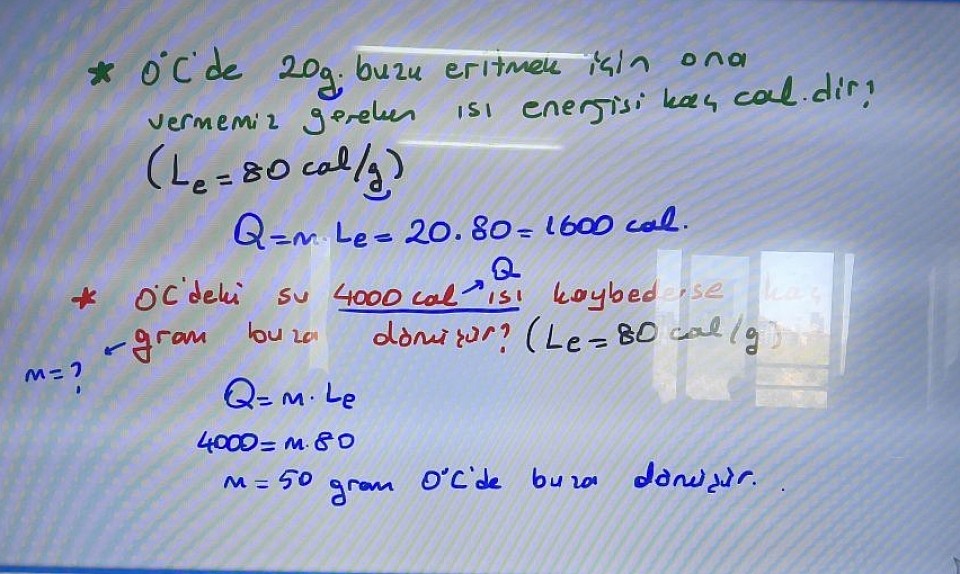 * 0°C'de 20g. buzu eritmek için ona
vermemiz gereken ısı enerjisi kaç cal.dir?
(Le = 80 cal/g)
Q = m. Le = 20.80 = 1600 cal.
* 0°C'deki su 4000 cal ısı → Q kaybederse kaç
gram buza dönüşür? (Le = 80 cal/g)
m = ?
Q = m. Le
4000 = m. 80
m = 50 gram 0°C'de buza dönüşür.